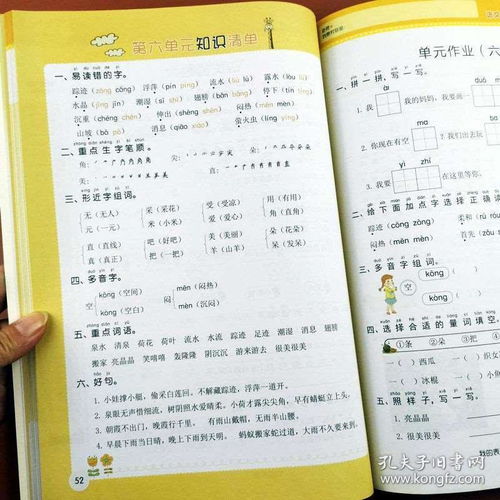 第六单元知识清单
一、易读错的字。
踪迹（zōng cōng） 浮萍（pín píng） 流水（liú lú） 露水（lòu lù）
水晶（jīng jīn） 潮湿（sī shī） 翅膀（bǎn bǎng） 停下（tín tíng）
沉重（chéng chén） 伸出（shēng shēn） 闷热（mēn mèn）
山坡（bō pō） 消息（qiāo xiāo） 萤火虫（líng yíng）
二、重点生字笔顺。
角：
尖：
空：
美：
直：
三、形近字组词。
无（无人） 采（采花） 受（受凉） 用（有用）
元（一元） 米（小米） 爱（爱心） 角（直角）
直（直线） 吧（好吧） 美（美丽） 朵（花朵）
真（真正） 把（一把） 羊（山羊） 呆（发呆）
四、多音字。
空 kōng（空间） kòng（空白） 闷 mēn（闷热） mèn（沉闷）
五、重点词语。
泉水 清泉 荷花 荷叶 流水 水流 踪迹 足迹 潮湿 消息 翅膀
搬家 亮晶晶 笑嘻嘻 轰隆隆 阴沉沉 游来游去 很美很美
六、好句。
1. 小娃撑小艇，偷采白莲回。不解藏踪迹，浮萍一道开。
2. 泉眼无声惜细流，树阴照水爱晴柔。小荷才露尖尖角，早有蜻蜓立上头。
3. 朝霞不出门，晚霞行千里。 有雨山戴帽，无雨半山腰。
4. 早晨下雨当日晴，晚上下雨到天明。 蚂蚁搬家蛇过道，大雨不久要来到。
52
单元作业（六
一、拼一拼，写一写。
duǒ
1. 我 的妈妈，我要画一
ma
2. 你现在有空
？我们出去玩
yǐ zhí
3. 我要 在这里等你。
二、给下面加点字选择正确读
踪迹（cōng zōng） 柔和（róu
闷热（mēn mèn） 首先（
三、多音字组词。
空 kōng（ ）
kòng（ ）
四、选择合适的量词填空。
①条 ②朵 ③把
一（ ）西瓜 一（ ）
一（ ）冰棍 一（ ）小鱼
五、照样子，写一写。
亮晶晶
很美很美
我的表
孔夫子旧书网
www.kongfz.com